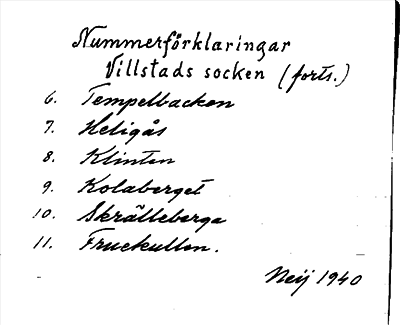 Nummerförklaringar
Villstads socken (forts.)
6. Tempelbacken
7. Heligås
8. Klinten
9. Kolaberget
10. Skrälleberga
11. Fruekullen.
Neij 1940